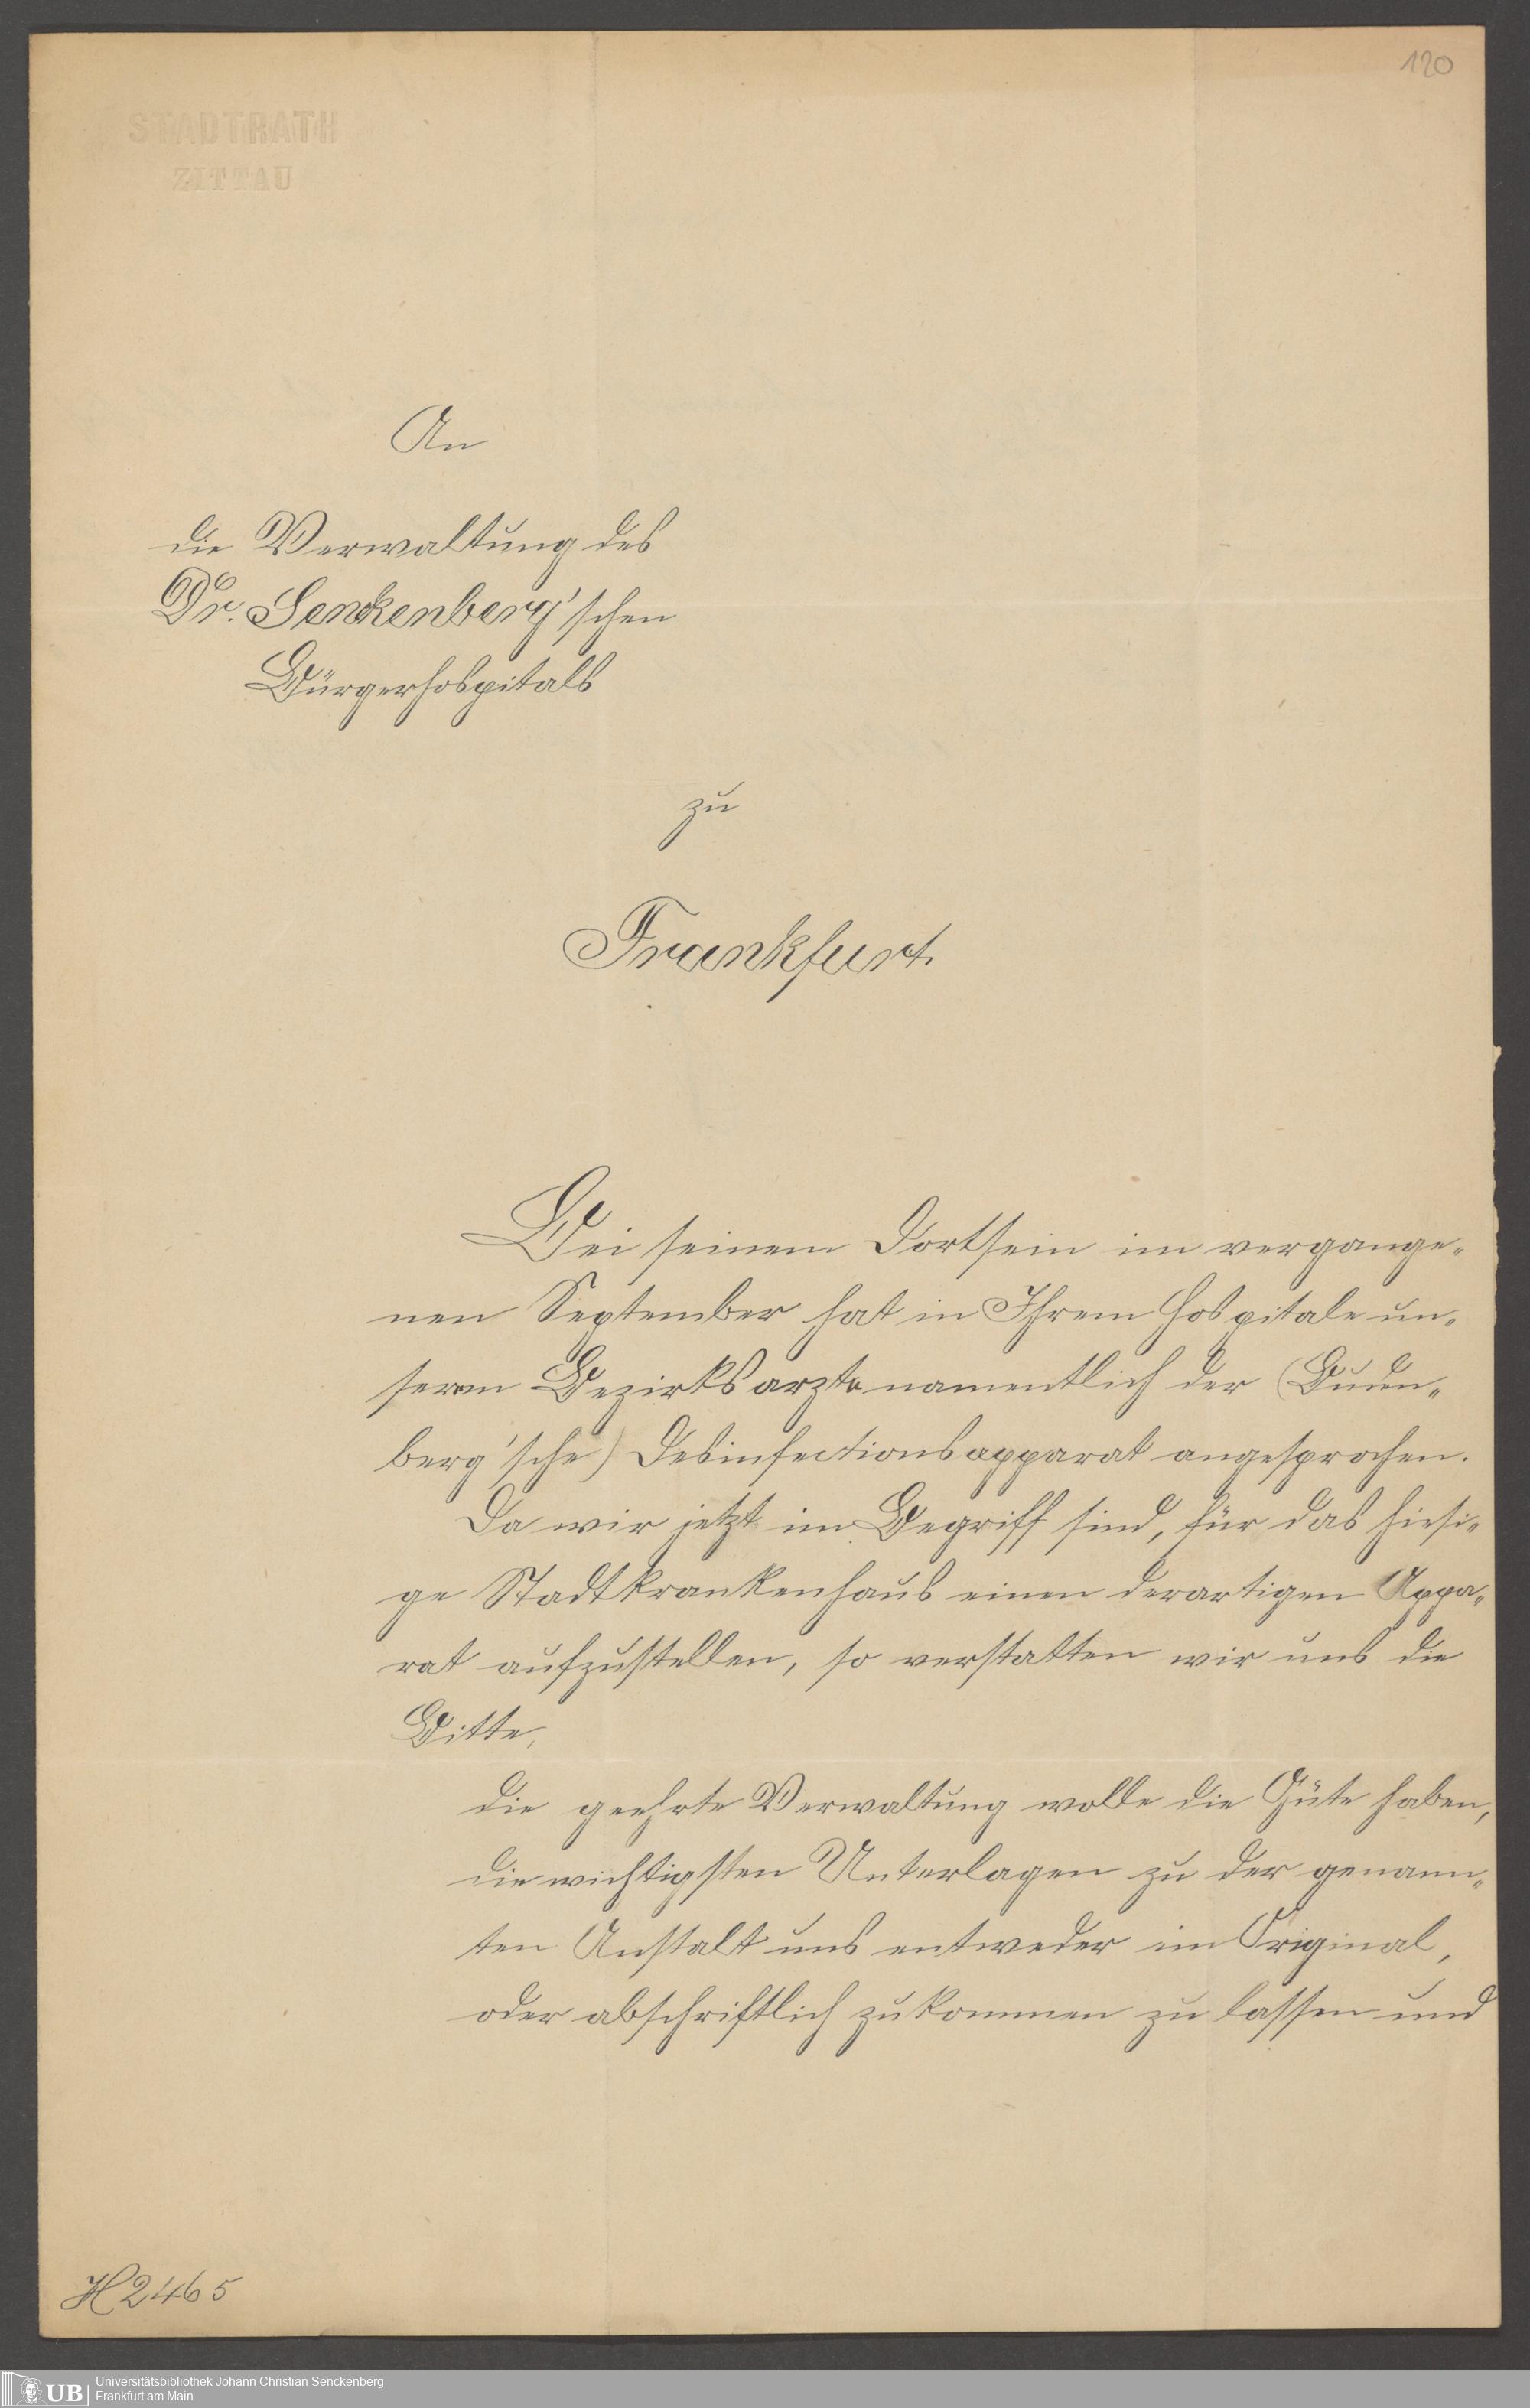 120
STADTRATH
ZITTAU
An
die Verwaltung des
Dr. Senkenberg'schen
Bürgerhospitals
zu
Frankfurt.
Bei seinem Dortsein im vergange-
nen September hat in Ihrem Hospitale un-
serm Bezirksarzte namentlich der (Buden-
berg'sche) Desinfectionsapparat angesprochen.
Da wir jetzt im Begriff sind, für das hiesi-
ge Stadtkrankenhaus einen derartigen Appa-
rat aufzustellen, so verstatten wir uns die
Bitte,
die geehrte Verwaltung wolle die Güte haben,
die wichtigsten Unterlagen zu der genann-
ten Anstalt uns entweder im Original,
oder abschriftlich zukommen zu lassen und
H 2465
UB
Universitätsbibliothek Johann Christian Senckenberg
Frankfurt am Main